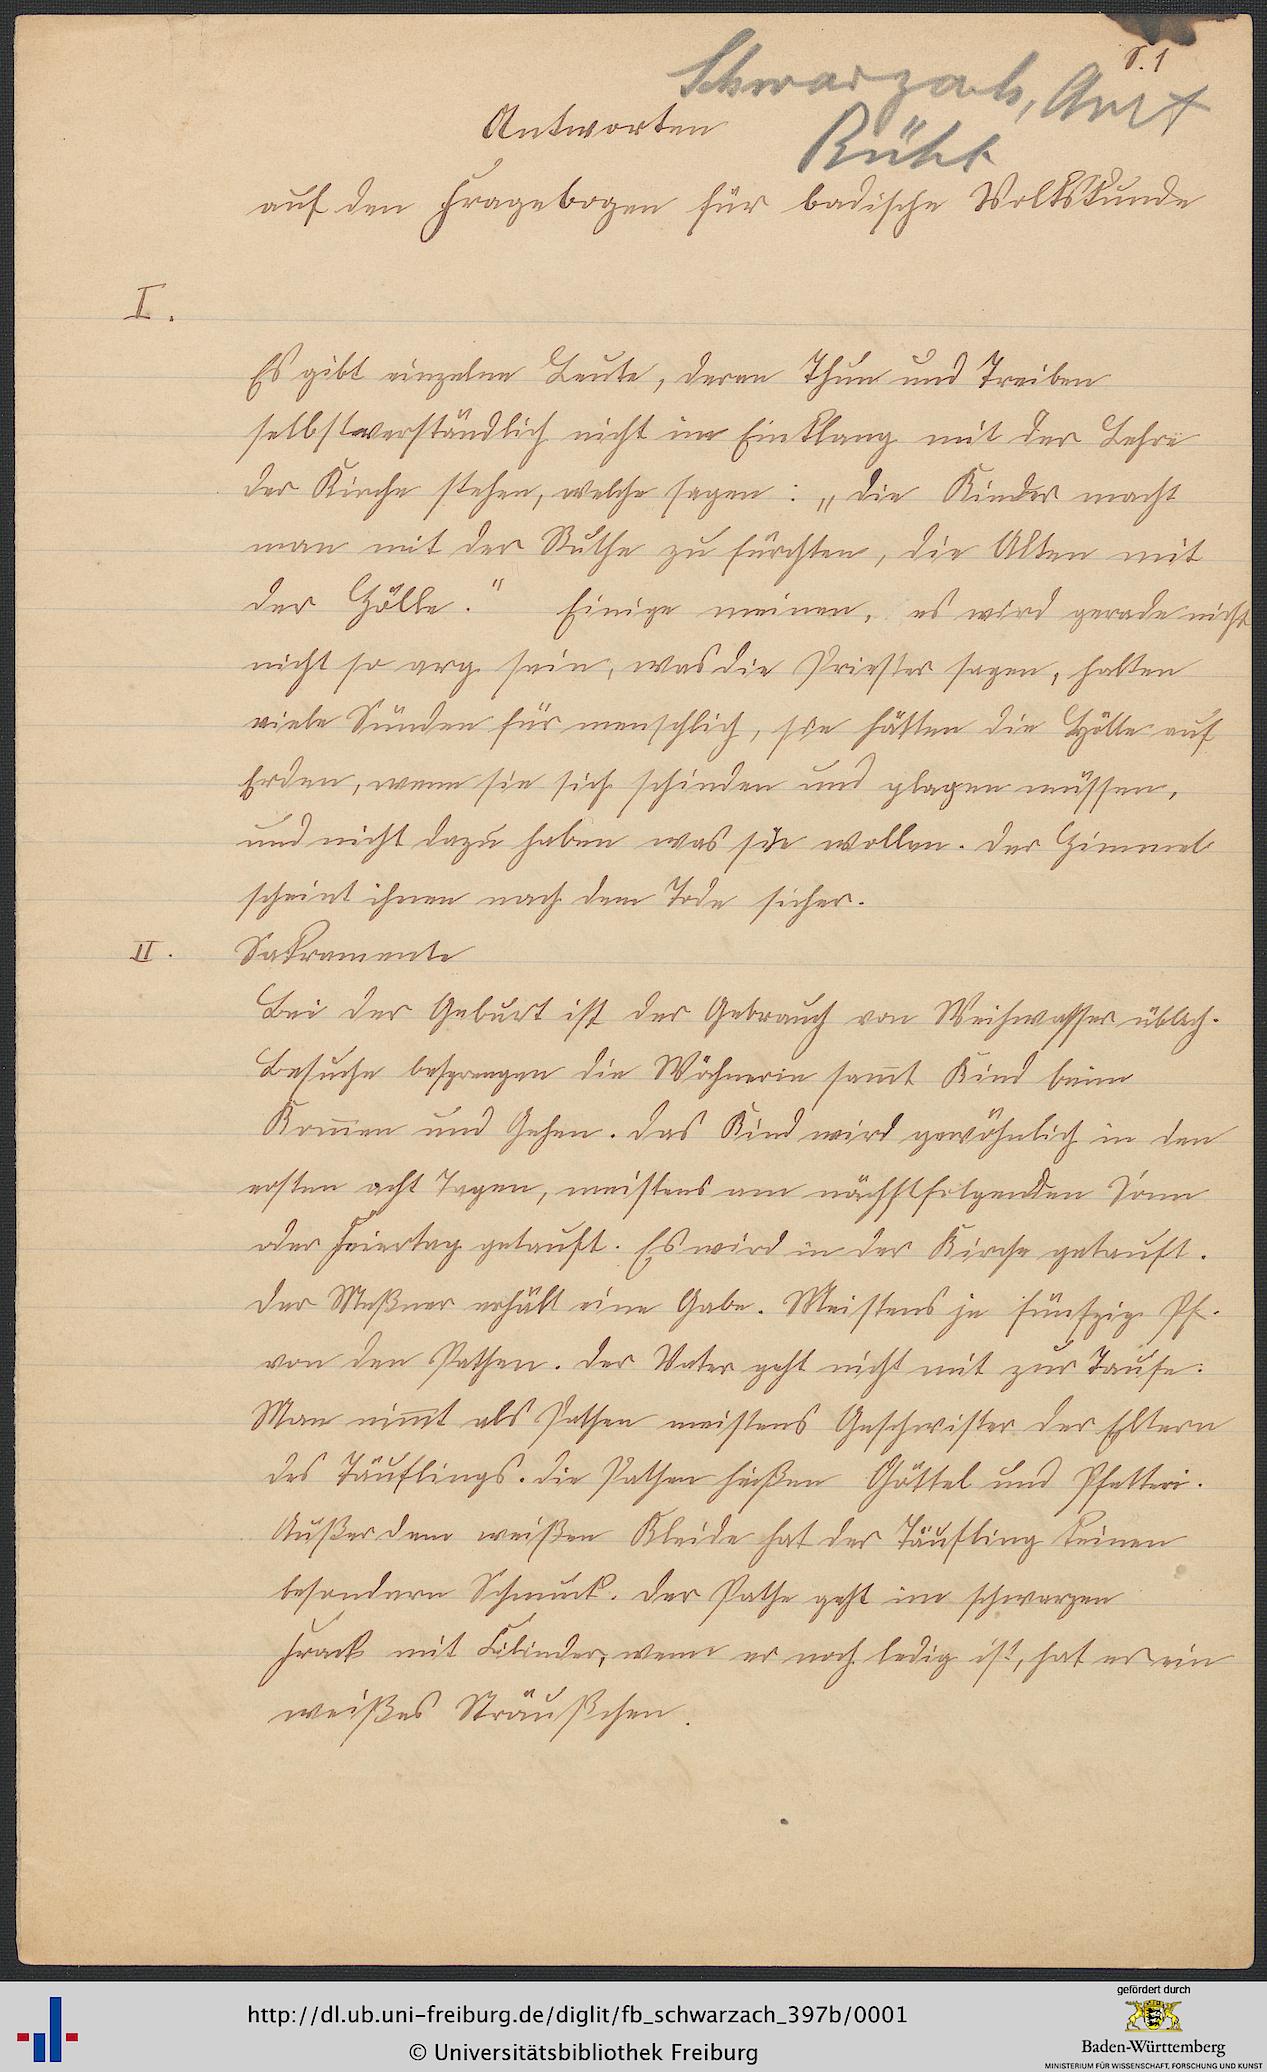 S. 1
Schwarzach, Amt
Bühl
Antworten
auf den Fragebogen für badische Volkskunde
I.
Es gibt einzelne Leute, deren Thun und Treiben
selbstverständlich nicht im Einklang mit der Lehre
der Kirche stehen, welche sagen: „die Kinder macht
man mit der Ruthe zu fürchten, die Alten mit
der Hölle." Einige meinen, es wird gerade nicht
nicht so arg sein, was die Priester sagen, halten
viele Sünden für menschlich, sie hätten die Hölle auf
Erden, wenn sie sich schinden und plagen müssen,
und nicht dazu haben was sie wollen. Der Himmel
scheint ihnen nach dem Tode sicher.
II. Sakramente
Bei der Geburt ist der Gebrauch von Weihwasser üblich.
Besuche besprengen die Wöchnerin sam̄t Kind beim
Kom̄en und Gehen. Das Kind wird gewöhnlich in den
ersten acht Tagen, meistens am nächstfolgenden Sonn
oder Feiertag getauft. Es wird in der Kirche getauft.
Der Meßner erhält eine Gabe. Meistens je fünfzig Pf.
von den Pathen. Der Vater geht nicht mit zur Taufe.
Man nim̄t als Pathen meistens Geschwister der Eltern
des Täuflings. Die Pathen heißen Göttel und Pfetteri.
Außer dem weißen Kleide hat der Täufling keinen
besondern Schmuck. Der Pathe geht im schwarzen
Frack mit Cilinder, wenn er noch ledig ist, hat er ein
weißes Sträußchen.
http://dl.ub.uni-freiburg.de/diglit/fb_schwarzach_397b/0001
© Universitätsbibliothek Freiburg
gefördert durch
Baden-Württemberg
MINISTERIUM FÜR WISSENSCHAFT, FORSCHUNG UND KUNST